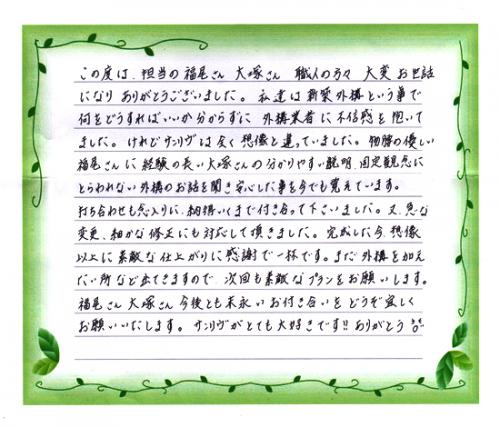 この度は、担当の福尾さん 大塚さん 職人の方々 大変お世話
になり ありがとうございました。私達は新築外構という事で
何をどうすればいいか分からずに 外構業者に不信感を抱いて
ました。けれどサンリヴは全く想像と違っていました。物腰の優しい
福尾さんに経験の長い大塚さんの分かりやすい説明、固定観念に
とらわれない外構のお話を聞き安心した事を今でも覚えています。
打ち合わせも念入りに、納得いくまで付き合って下さいました。又、急な
変更、細かな修正にも対応して頂きました。完成した今、想像
以上に素敵な仕上がりに感謝で一杯です。まだ外構を加え
たい所など出てきますので、次回も素敵なプランをお願いします。
福尾さん 大塚さん 今後とも末永いお付き合いをどうぞ宜しく
お願いいたします。サンリヴがとても大好きです!! ありがとう